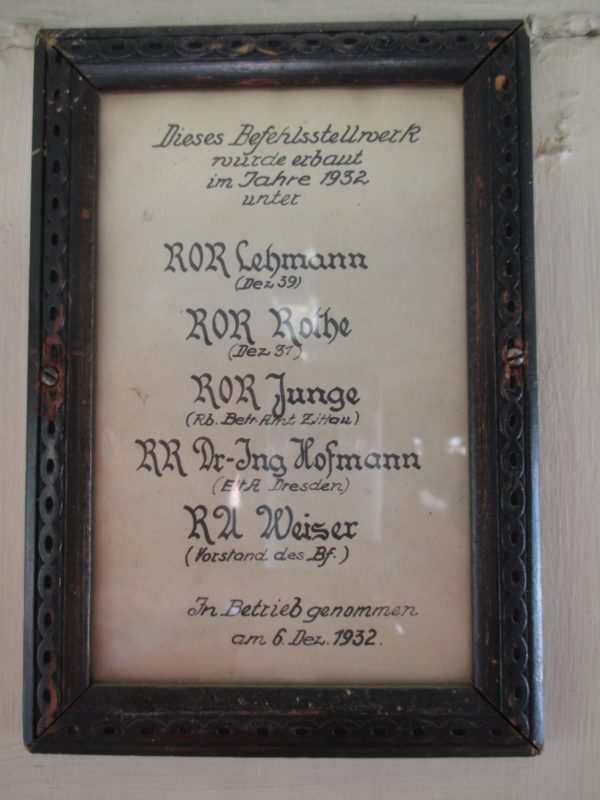 Dieses Befehlsstellwerk
wurde erbaut
im Jahre 1932
unter
ROR Lehmann
(Dez 39)
ROR Rothe
(Dez 31)
ROR Junge
(Rb. Betr. Amt Zittau)
RR Dr-Ing Hofmann
(EltA Dresden)
RA Weiser
(Vorstand des Bf.)
In Betrieb genommen
am 6. Dez. 1932.